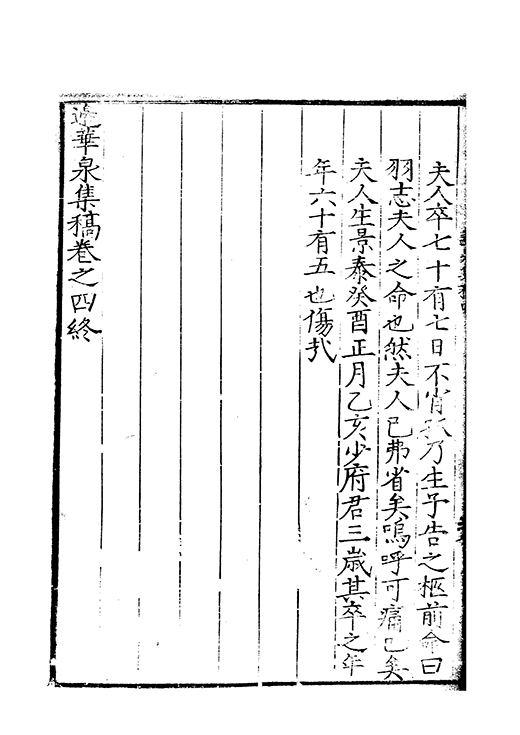 夫人卒七十有七日不肖孤乃生子告之柩前命曰
羽志夫人之命也然夫人已弗省矣嗚呼可痛已矣
夫人生景泰癸酉正月乙亥少府君三歲其卒之年
年六十有五也傷㢤
邊華泉集稿卷之四終